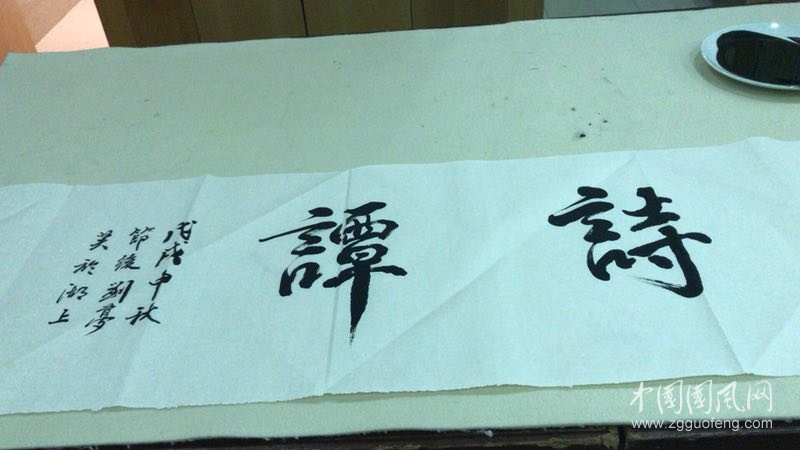 詩譚
戊戌中秋
節後劉夢
芙於湖上
中国国风网
www.zgguofeng.com